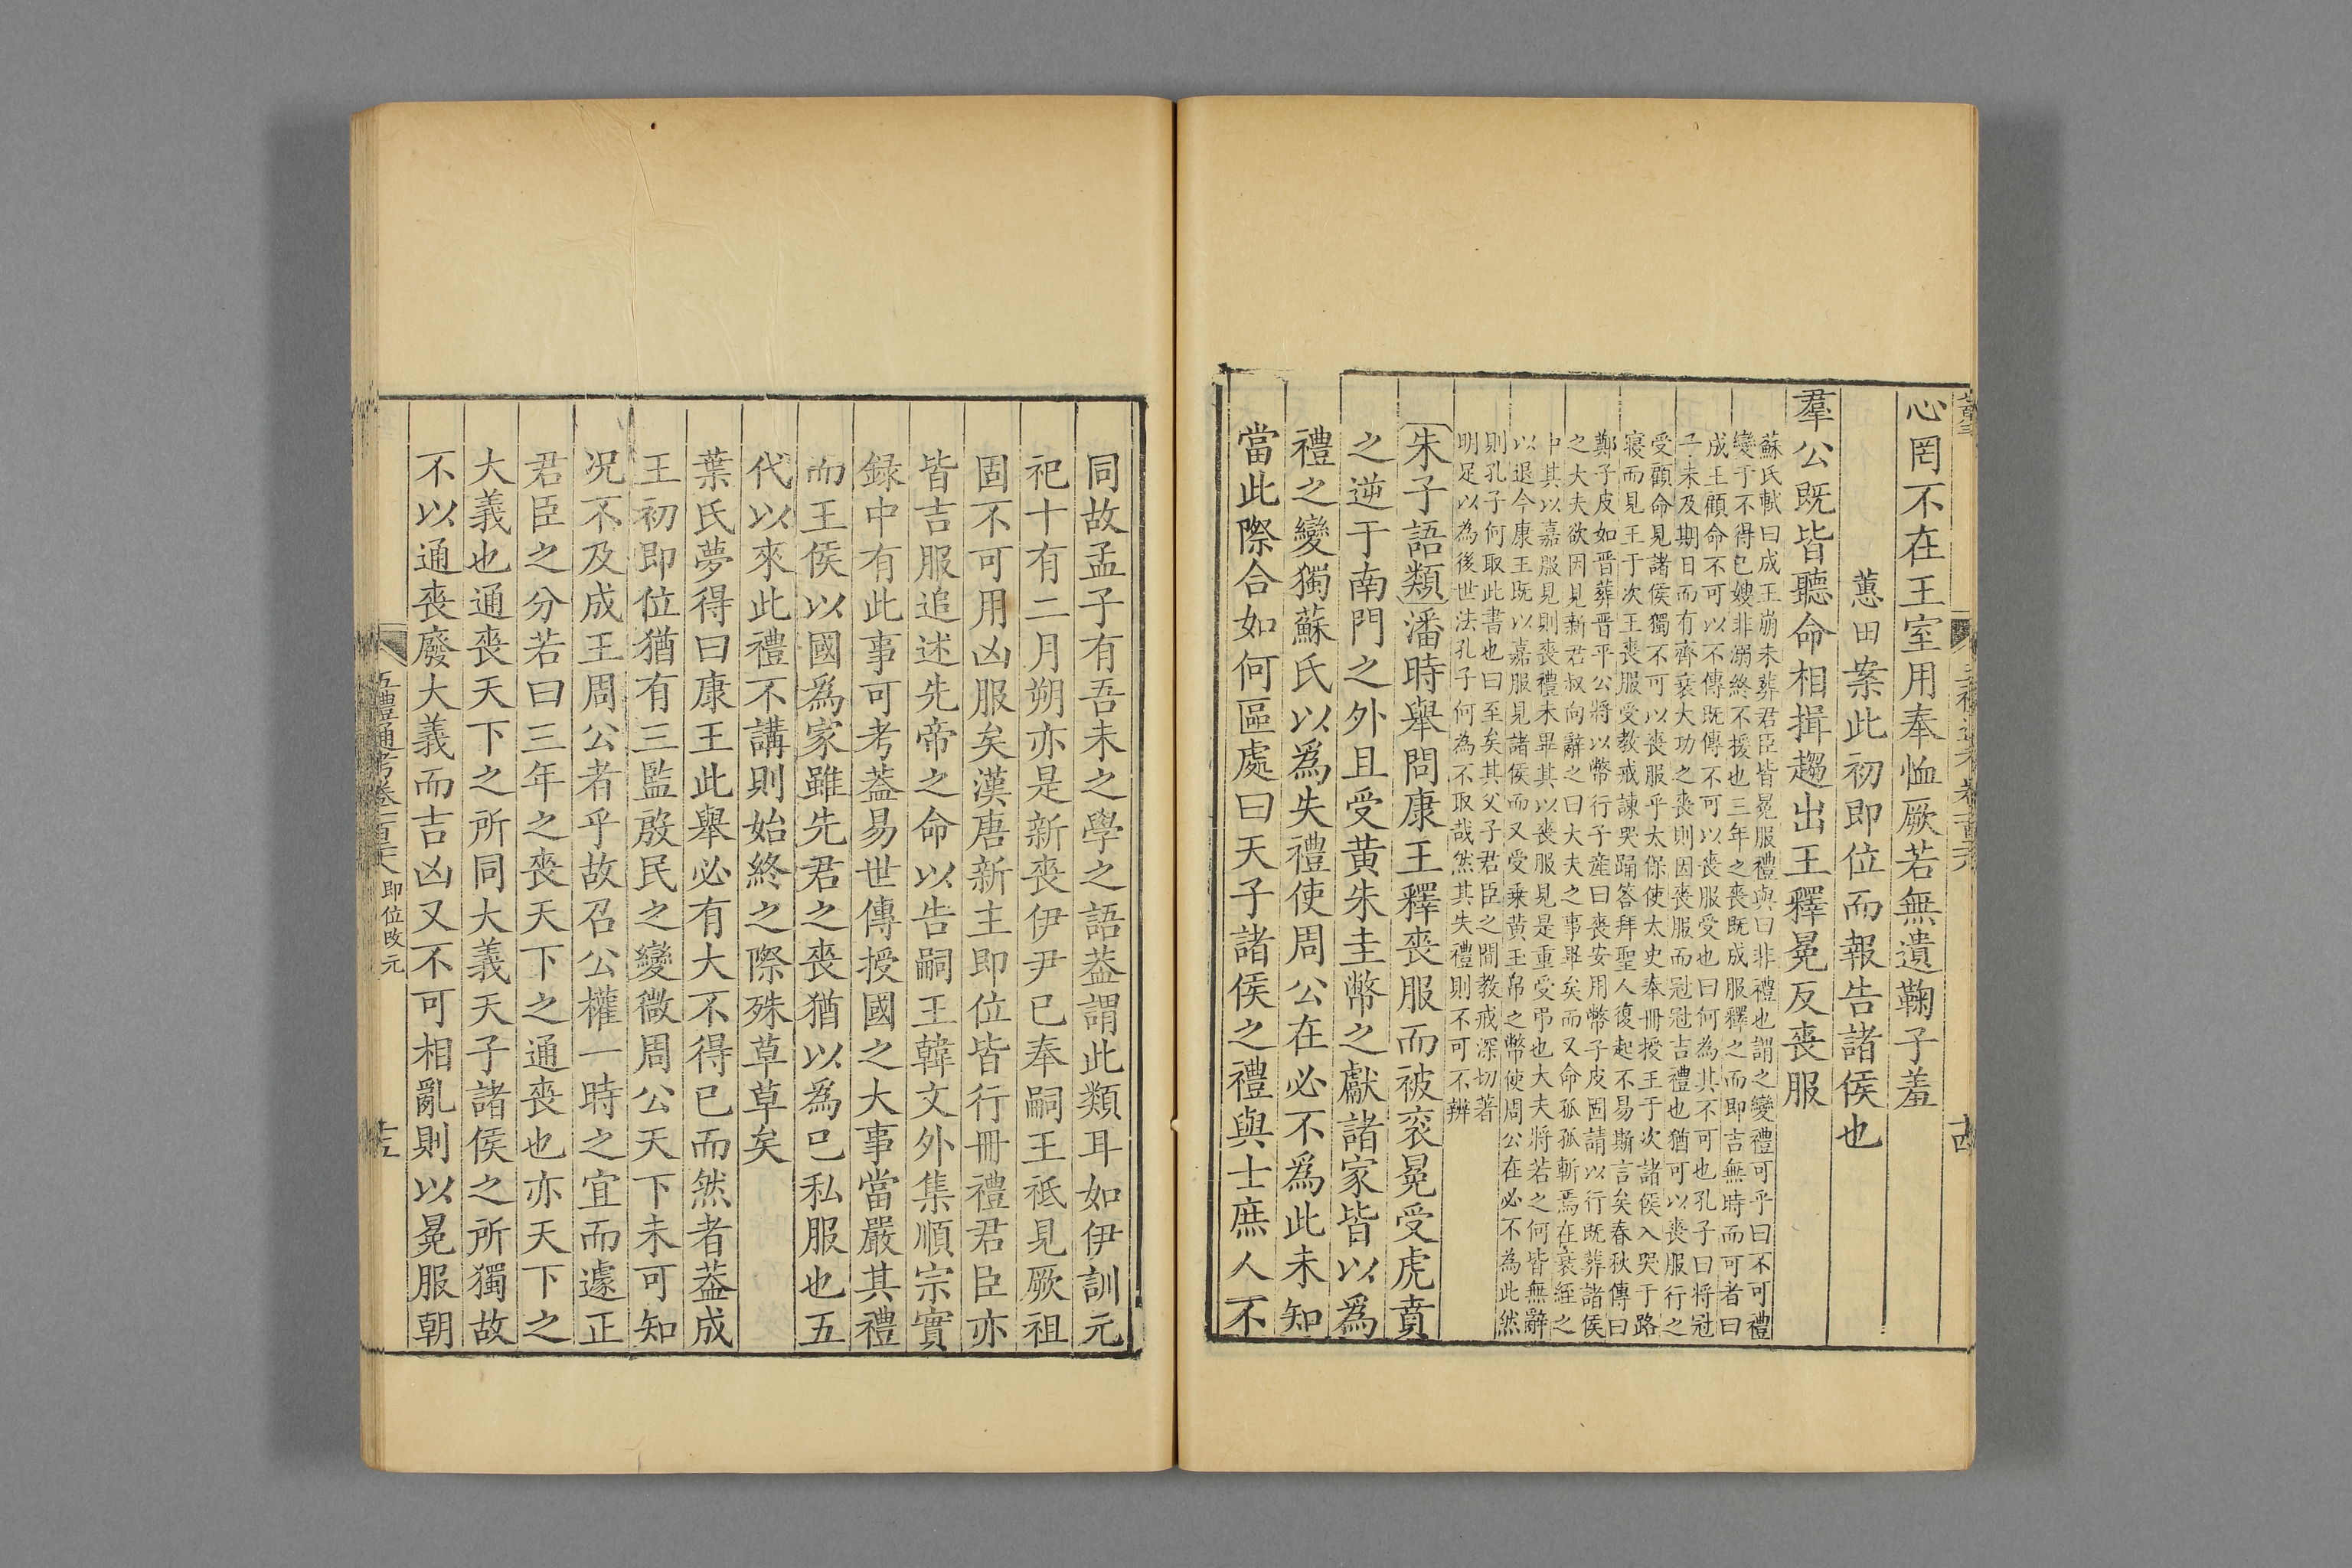 心罔不在王室用奉恤厥若無遺鞠子羞
蕙田案此初即位而報告諸侯也
羣公既皆聽命相揖趨出王釋冕反喪服
蘇氏軾曰成王崩未葬君臣皆冕服禮與曰非禮也謂之變禮可乎曰不可禮
變于不得已嫂非溺終不援也三年之喪既成服釋之而即吉無時而可者曰
成王顧命不可以不傳既傳不可以喪服受也曰何為其不可也孔子曰將冠
子未及期日而有齊衰大功之喪則因喪服而冠冠吉禮也猶可以喪服行之
受顧命見諸侯獨不可以喪服乎太保使太史奉冊授王于次諸侯入哭于路
寢而見王于次王喪服受教戒諫哭踊答拜聖人復起不易斯言矣春秋傳曰
鄭子皮如晋葬晋平公將以幣行子產曰喪安用幣子皮固請以行既葬諸侯
之大夫欲因見新君叔向辭之曰大夫之事畢矣而又命孤孤斬焉在衰絰之
中其以嘉服見則喪禮未畢其以喪服見是重受弔也大夫將若之何皆無辭
以退今康王既以嘉服見諸侯而又受乘黄玉帛之幣使周公在必不為此然
則孔子何取此書也曰至矣其父子君臣之間教戒深切著
明足以為後世法孔子何為不取哉然其失禮則不可不辨
朱子語類潘時舉問康王釋喪服而被衮冕受虎賁
之逆于南門之外且受黄朱圭幣之獻諸家皆以為
禮之變獨蘇氏以為失禮使周公在必不為此未知
當此際合如何區處曰天子諸侯之禮與士庶人不
同故孟子有吾未之學之語葢謂此類耳如伊訓元
祀十有二月朔亦是新喪伊尹已奉嗣王祇見厥祖
固不可用凶服矣漢唐新主即位皆行冊禮君臣亦
皆吉服追述先帝之命以告嗣王韓文外集順宗實
録中有此事可考葢易世傳授國之大事當嚴其禮
而王侯以國為家雖先君之喪猶以為已私服也五
代以來此禮不講則始終之際殊草草矣
葉氏夢得曰康王此舉必有大不得已而然者葢成
王初即位猶有三監殷民之變微周公天下未可知
况不及成王周公者乎故召公權一時之宜而遽正
君臣之分若曰三年之喪天下之通喪也亦天下之
大義也通喪天下之所同大義天子諸侯之所獨故
不以通喪廢大義而吉凶又不可相亂則以冕服朝
五禮通考卷一百二十八即位改元